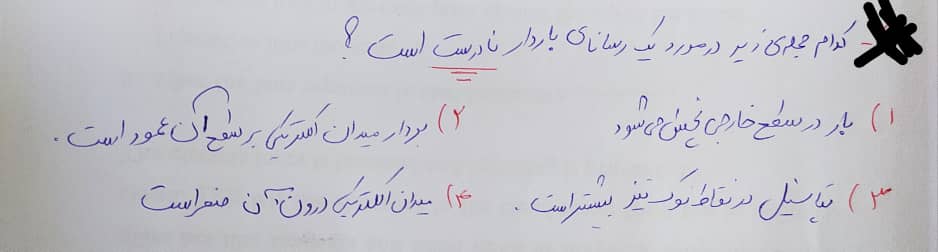 - کدام جمله‌ی زیر در مورد یک رسانای باردار نادرست است ؟
۱) بار در سطح خارجی پخش می‌شود ۲) بردار میدان الکتریکی بر سطح آن عمود است .
۳) پتانسیل در نقاط نوک تیز بیشتر است . ۴) میدان الکتریکی درون آن صفر است